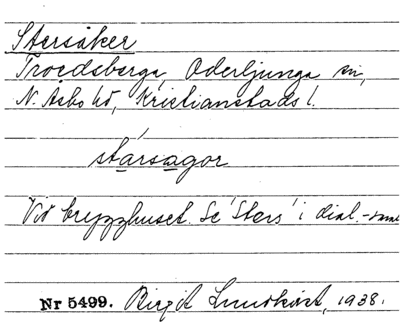 Stersåker
Troedsberga, Oderljunga sn,
N. Åsbo hd, Kristianstads l.
stársagor
Vid brygghuset. Se 'Sters' i dial.-saml
Nr 5499. Birgit Lundkvist, 1938.